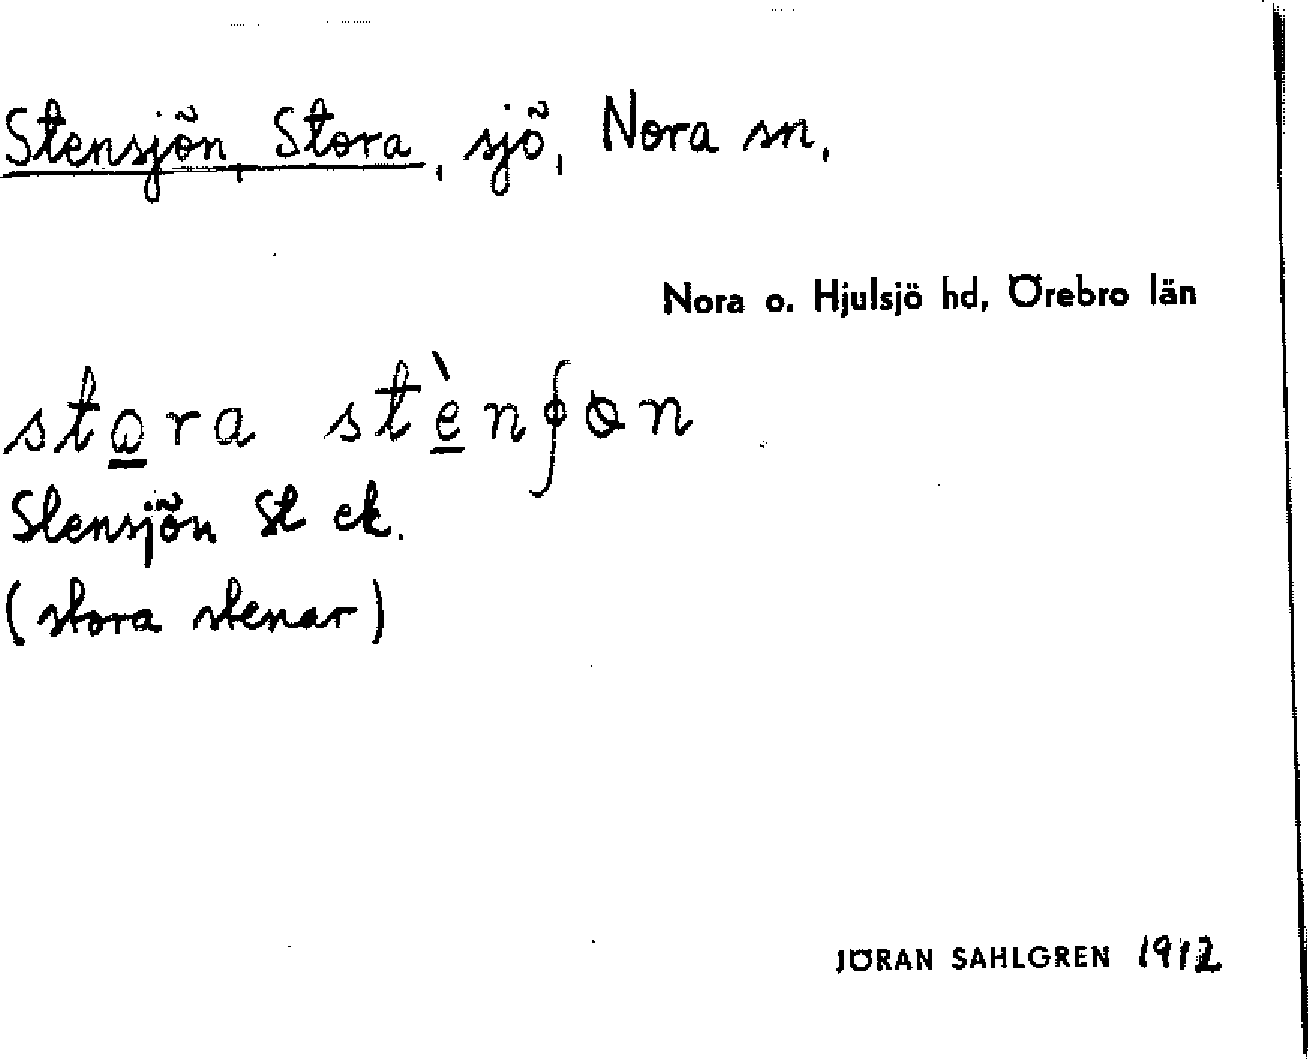 Stensjön, Stora, sjö, Nora sn,
Nora o. Hjulsjö hd, Örebro län
stora stènʃɵn
Stensjön St ek.
(stora stenar)
JÖRAN SAHLGREN 1912